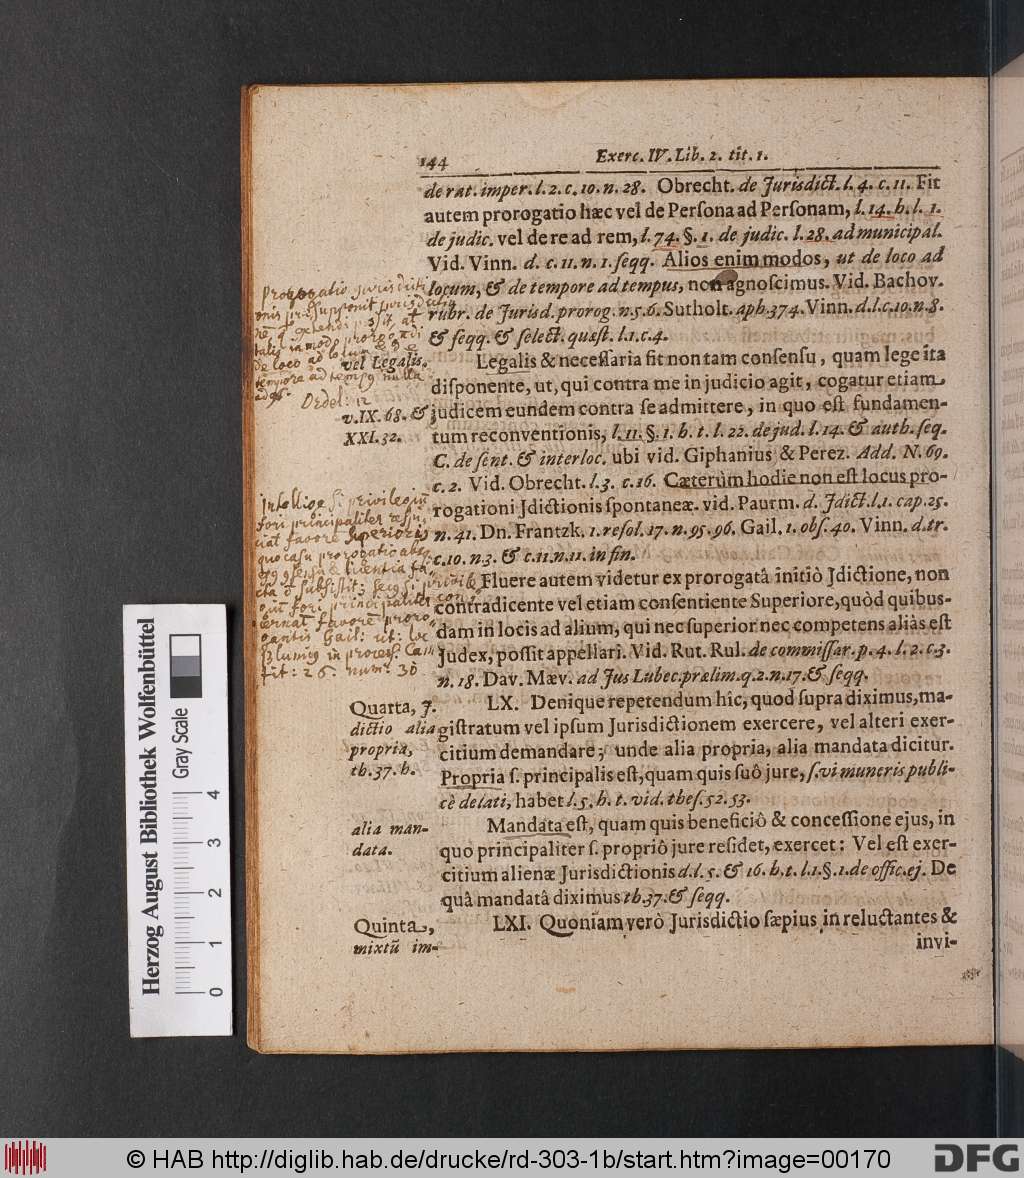 144 Exerc. IV. Lib. 2. tit. 1.
de rat. imper. l. 2. c. 10. n. 28. Obrecht. de Jurisdict. l. 4. c. 11. Fit
autem prorogatio hæc vel de Perſona ad Perſonam, l. 14. h. l. 1.
de judic. vel de re ad rem, l. 74. §. 1. de judic. l. 28. ad municipal.
Vid. Vinn. d. c. 11. n. 1. ſeqq. Alios enim modos, ut de loco ad
locum, & de tempore ad tempus, non agnoſcimus. Vid. Bachov.
rubr. de Jurisd. prorog. n. 5. 6. Sutholt. aph. 374. Vinn. d. l. c. 10. n. 8.
& ſeqq. & ſelect. quæſt. l. 1. c. 4.
vel Legalis.
Legalis & neceſſaria fit non tam conſenſu, quam lege ita
diſponente, ut, qui contra me in judicio agit, cogatur etiam
v. IX. 68. &
XXI. 32.
judicem eundem contra ſe admittere, in quo eſt fundamen-
tum reconventionis, l. 11. §. 1. h. t. l. 22. de jud. l. 14. & auth. ſeq.
C. de ſent. & interloc. ubi vid. Giphanius & Perez. Add. N. 69.
c. 2. Vid. Obrecht. l. 3. c. 16. Cæterùm hodie non eſt locus pro-
rogationi Jdictionis ſpontaneæ. vid. Paurm. d. Jdict. l. 1. cap. 25.
n. 41. Dn. Frantzk. 1. reſol. 17. n. 95. 96. Gail. 1. obſ. 40. Vinn. d. tr.
c. 10. n. 3. & c. 11. n. 11. in fin.
Fluere autem videtur ex prorogatâ initiò Jdictione, non
contradicente vel etiam conſentiente Superiore, quòd quibus-
dam in locis ad alium, qui nec ſuperior nec competens aliàs eſt
Judex, poſſit appellari. Vid. Rut. Rul. de commiſſar. p. 4. l. 2. c. 3.
n. 18. Dav. Mæv. ad Jus Lubec. prælim. q. 2. n. 17. & ſeqq.
Quarta, J.
dictio alia
propria,
th. 37. h.
LX. Denique repetendum hîc, quod ſupra diximus, ma-
giſtratum vel ipſum Jurisdictionem exercere, vel alteri exer-
citium demandare; unde alia propria, alia mandata dicitur.
Propria ſ. principalis eſt, quam quis ſuô jure, ſ. vi muneris publi-
cè delati, habet l. 5. h. t. vid. theſ. 52. 53.
alia man-
data.
Mandata eſt, quam quis beneficiò & conceſſione ejus, in
quo principaliter ſ. propriô jure reſidet, exercet: Vel eſt exer-
citium alienæ Jurisdictionis d. l. 5. & 16. h. t. l. 1. §. 1. de offic. ej. De
quâ mandatâ diximus th. 37. & ſeqq.
Quinta,
mixtũ im-
LXI. Quoniam verò Jurisdictio ſæpius in reluctantes &
invi-
Prorogatio jurisdicti
onis præsupponit jurisdictio
de loco ad locum
tempore ad temp9 nulla
Ordel: 12
Intellige si privilegiũ
fori principaliter respi
ciat favorẽ Superioris
quo casu prorogatio absq
fori principaliter
favorem proro
gantis Gail:
in process. Cam
tit: 26. num: 30
Herzog August Bibliothek Wolfenbüttel
Gray Scale
0 1 2 3 4
© HAB http://diglib.hab.de/drucke/rd-303-1b/start.htm?image=00170
DFG